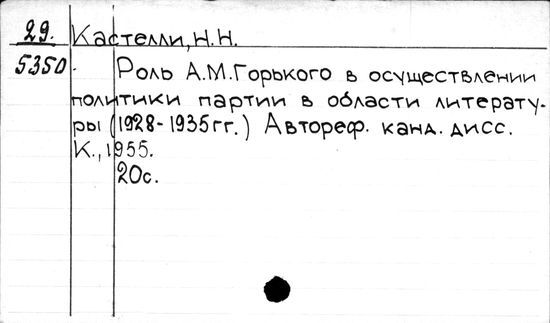 29. Кастелли, Н.Н.
5350. Роль А.М.Горького в осуществлении
политики партии в области литерату-
ры (1928-1935гг.) Автореф. канд. дисс.
К., 1955.
20с.